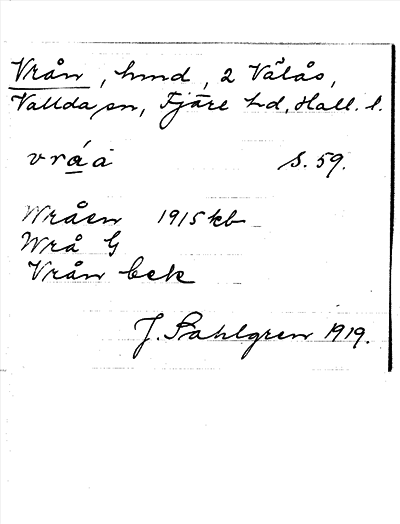 Vrån, hmd, 2 Välås,
Vallda sn, Fjäre hd, Hall. l.
vrǻa s. 59.
Wråen 1915 kb
Wrå G
Vrån bek
J. Sahlgren 1919.